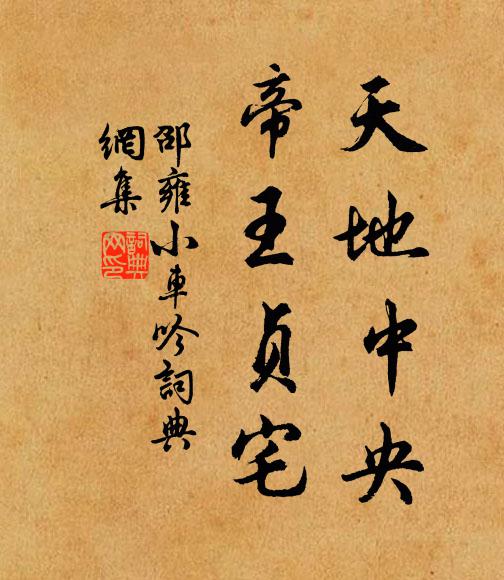 天地中央
帝王貞宅
邵雍小車吟詞典
網集
詞典
网印